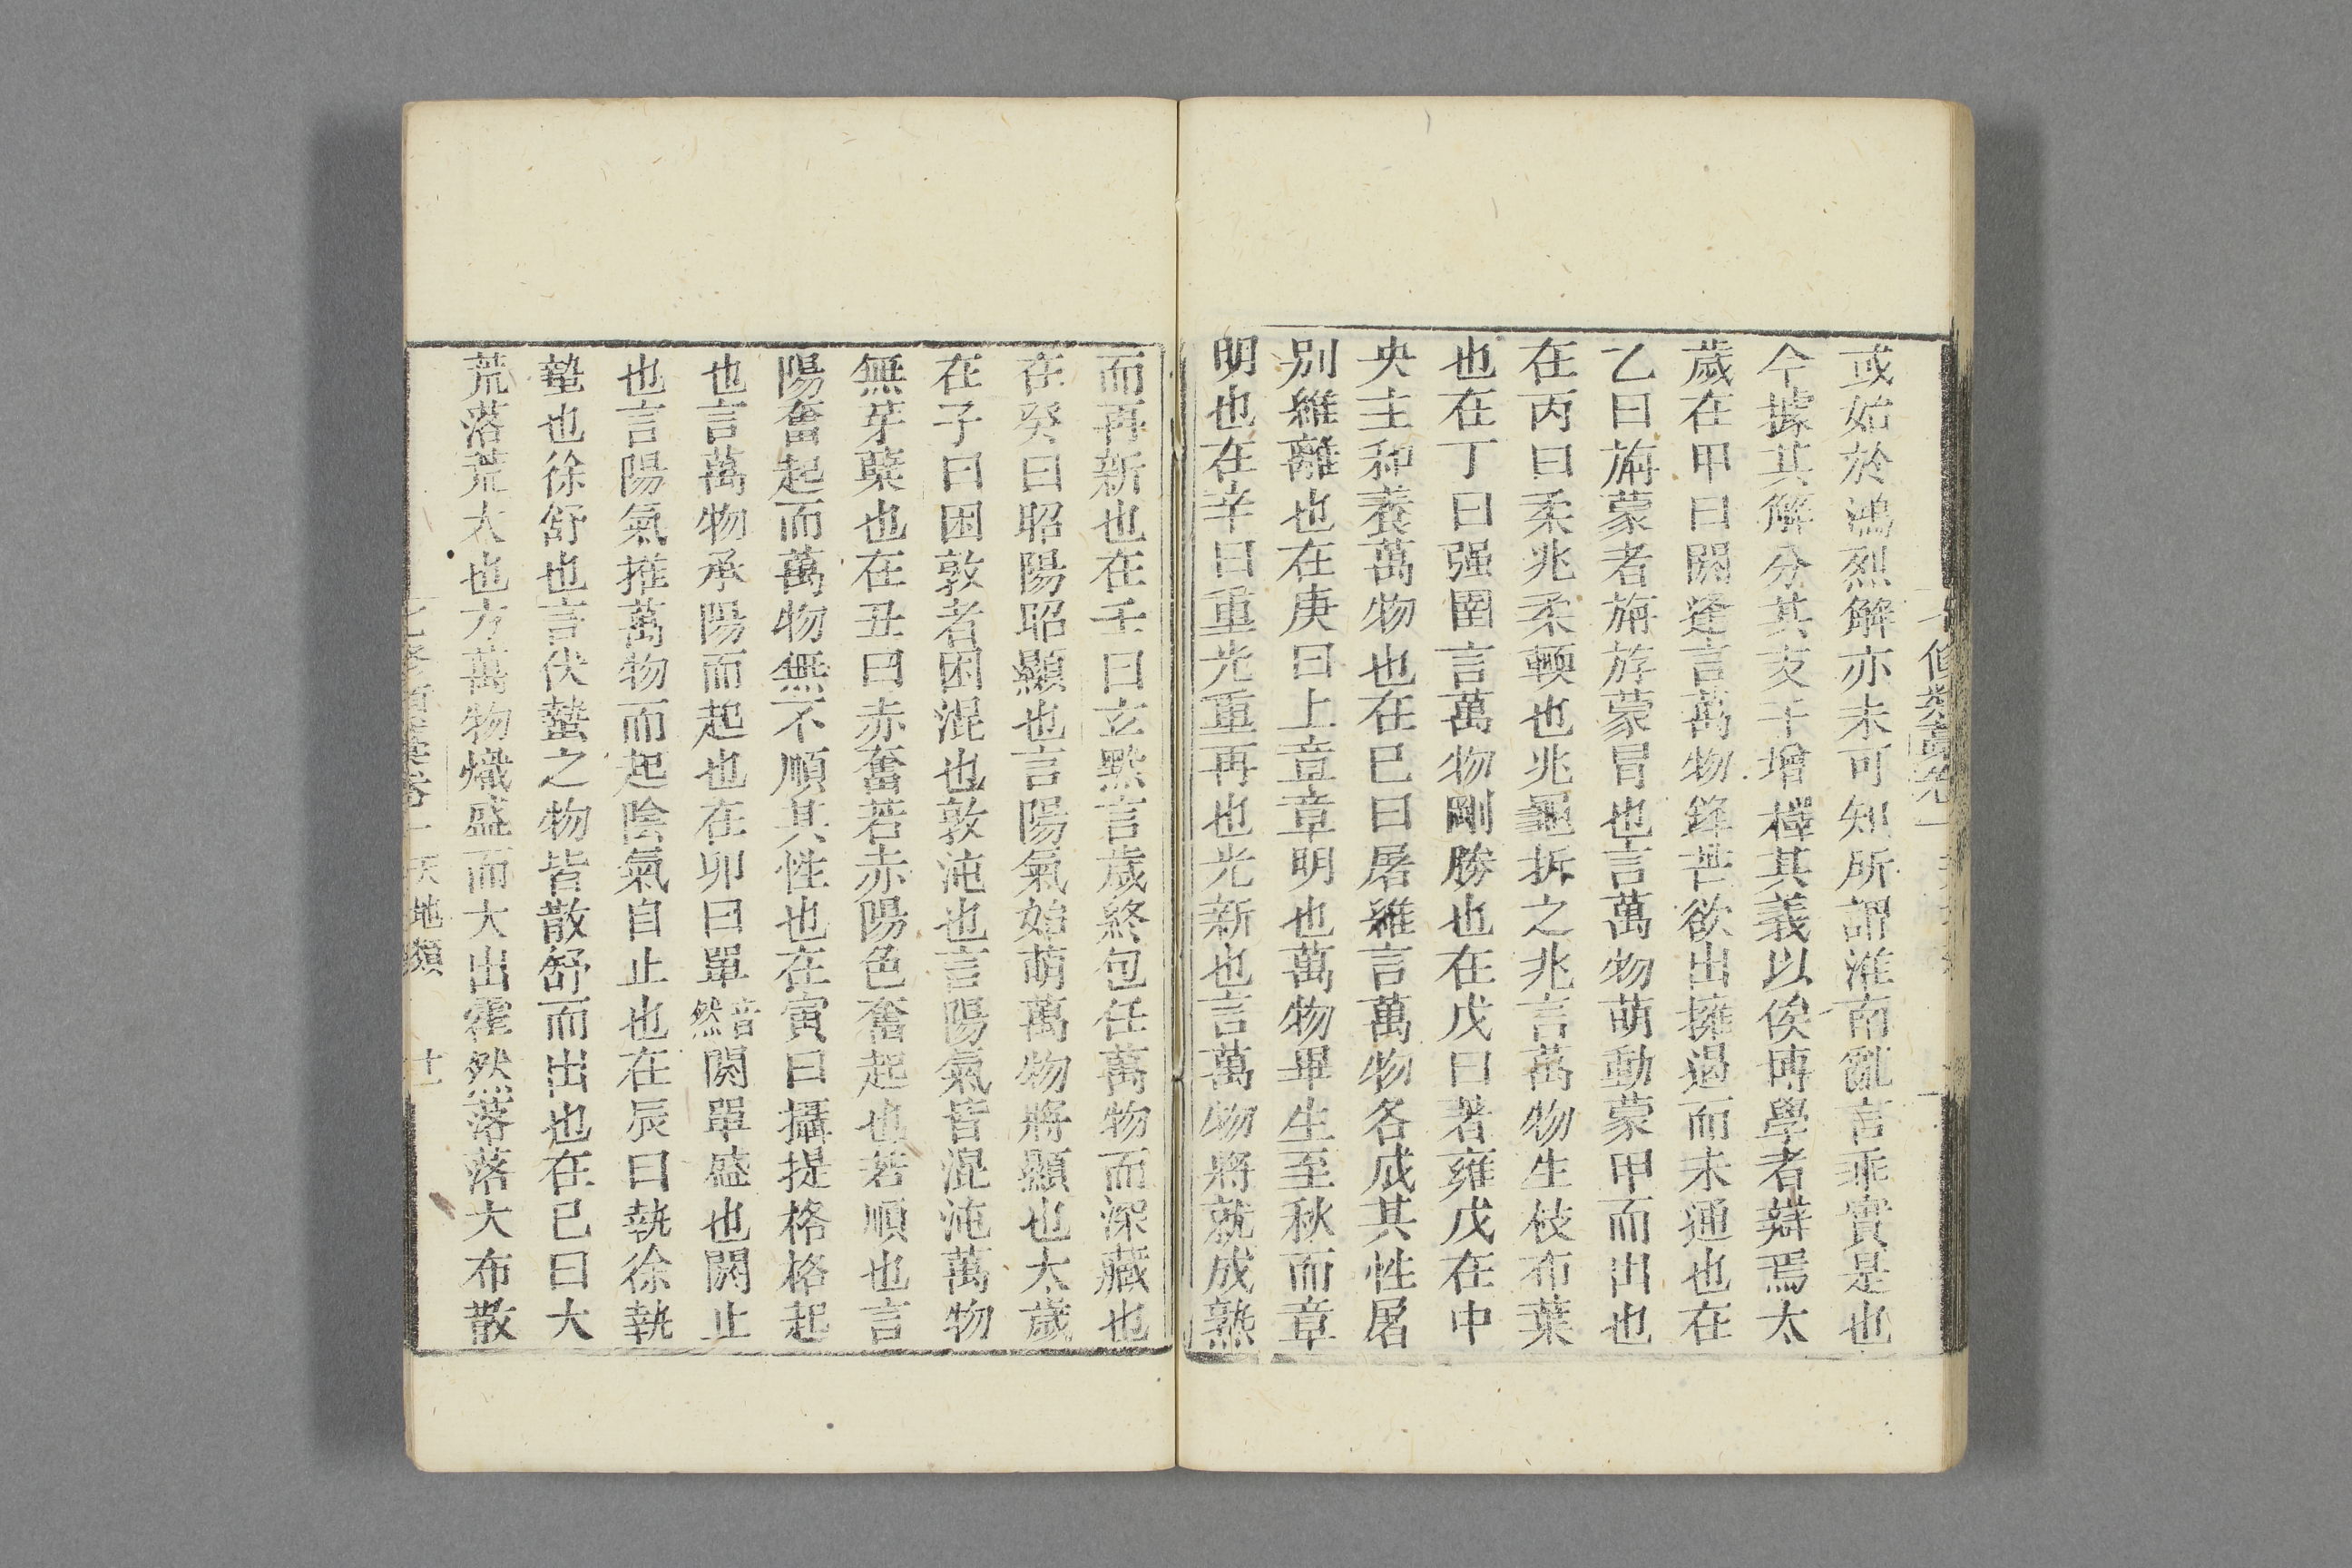 或始於鴻烈解亦未可知所謂淮南亂言乖實是也
今據其解分其支干增釋其義以俟博學者辯焉太
歲在甲曰閼逢言萬物鋒芒欲出擁遏而未通也在
乙曰旃蒙者旃斿蒙冒也言萬物萌動蒙甲而出也
在丙曰柔兆柔輭也兆龜拆之兆言萬物生枝布葉
也在丁曰强圉言萬物剛勝也在戊曰著雍戊在中
央主和養萬物也在巳曰屠維言萬物各成其性屠
別維離也在庚曰上章章明也萬物畢生至秋而章
明也在辛曰重光重再也光新也言萬物將就成熟
而再新也在壬曰玄黓言歲終包任萬物而深藏也
在癸曰昭陽昭顯也言陽氣始萌萬物將顯也太歲
在子曰困敦者困混也敦沌也言陽氣皆混沌萬物
無牙蘖也在丑曰赤奮若赤陽色奮起也若順也言
陽奮起而萬物無不順其性也在寅曰攝提格格起
也言萬物承陽而起也在卯曰單音然閼單盛也閼止
也言陽氣推萬物而起陰氣自止也在辰曰執徐執
蟄也徐舒也言伏蟄之物皆散舒而出也在巳曰大
荒落荒大也方萬物熾盛而大出霍然落落大布散
卷一 天地類 十一